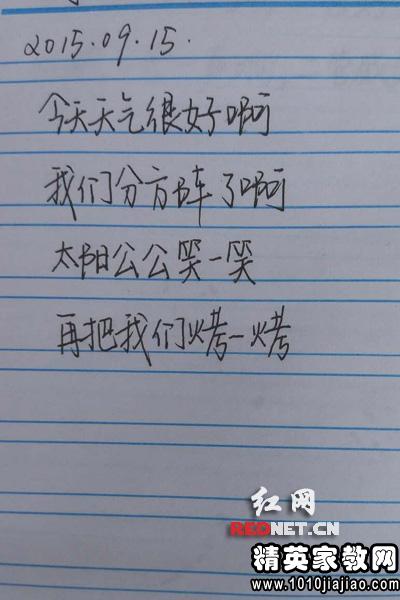 2015.09.15.
今天天气很好啊
我们分方阵了啊
太阳公公笑一笑
再把我们烤一烤
红网
REDNET.CN
精英家教网
www.1010jiajiao.com